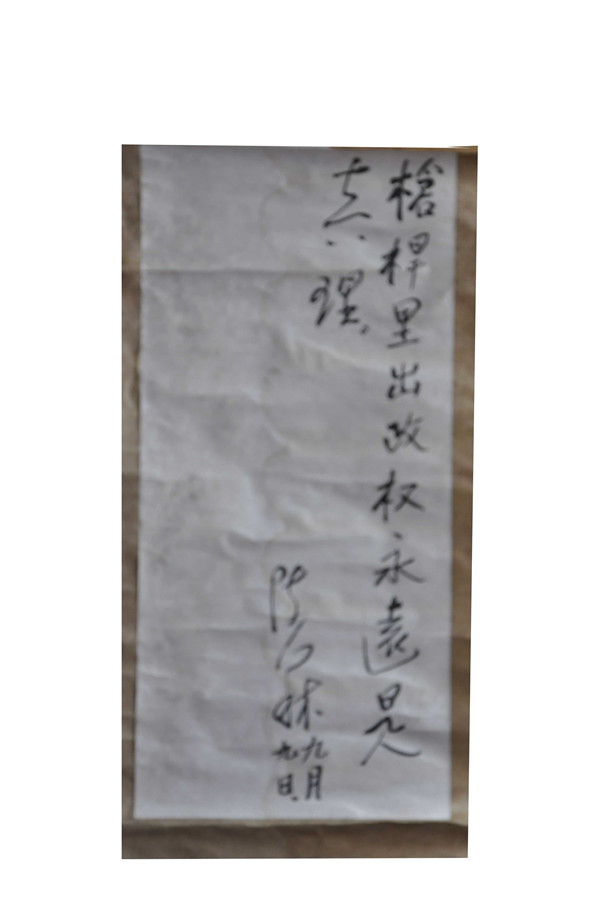 槍桿里出政权永遠是
真理.
陈
九月
九日.